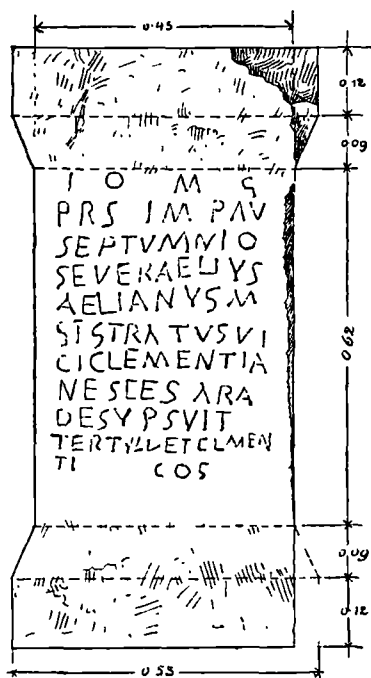 0.45
0.12
0.09
I O M G
PRS IM PAV
SEPTVMNIO
SEVERAELIVS
AELIANVSM
SISTRATVSVI
CICLEMENTIA
NESCES ARA
DESVPSVIT
TERTVLLETCLMEN
TI COS
0.62
0.09
0.12
0.53